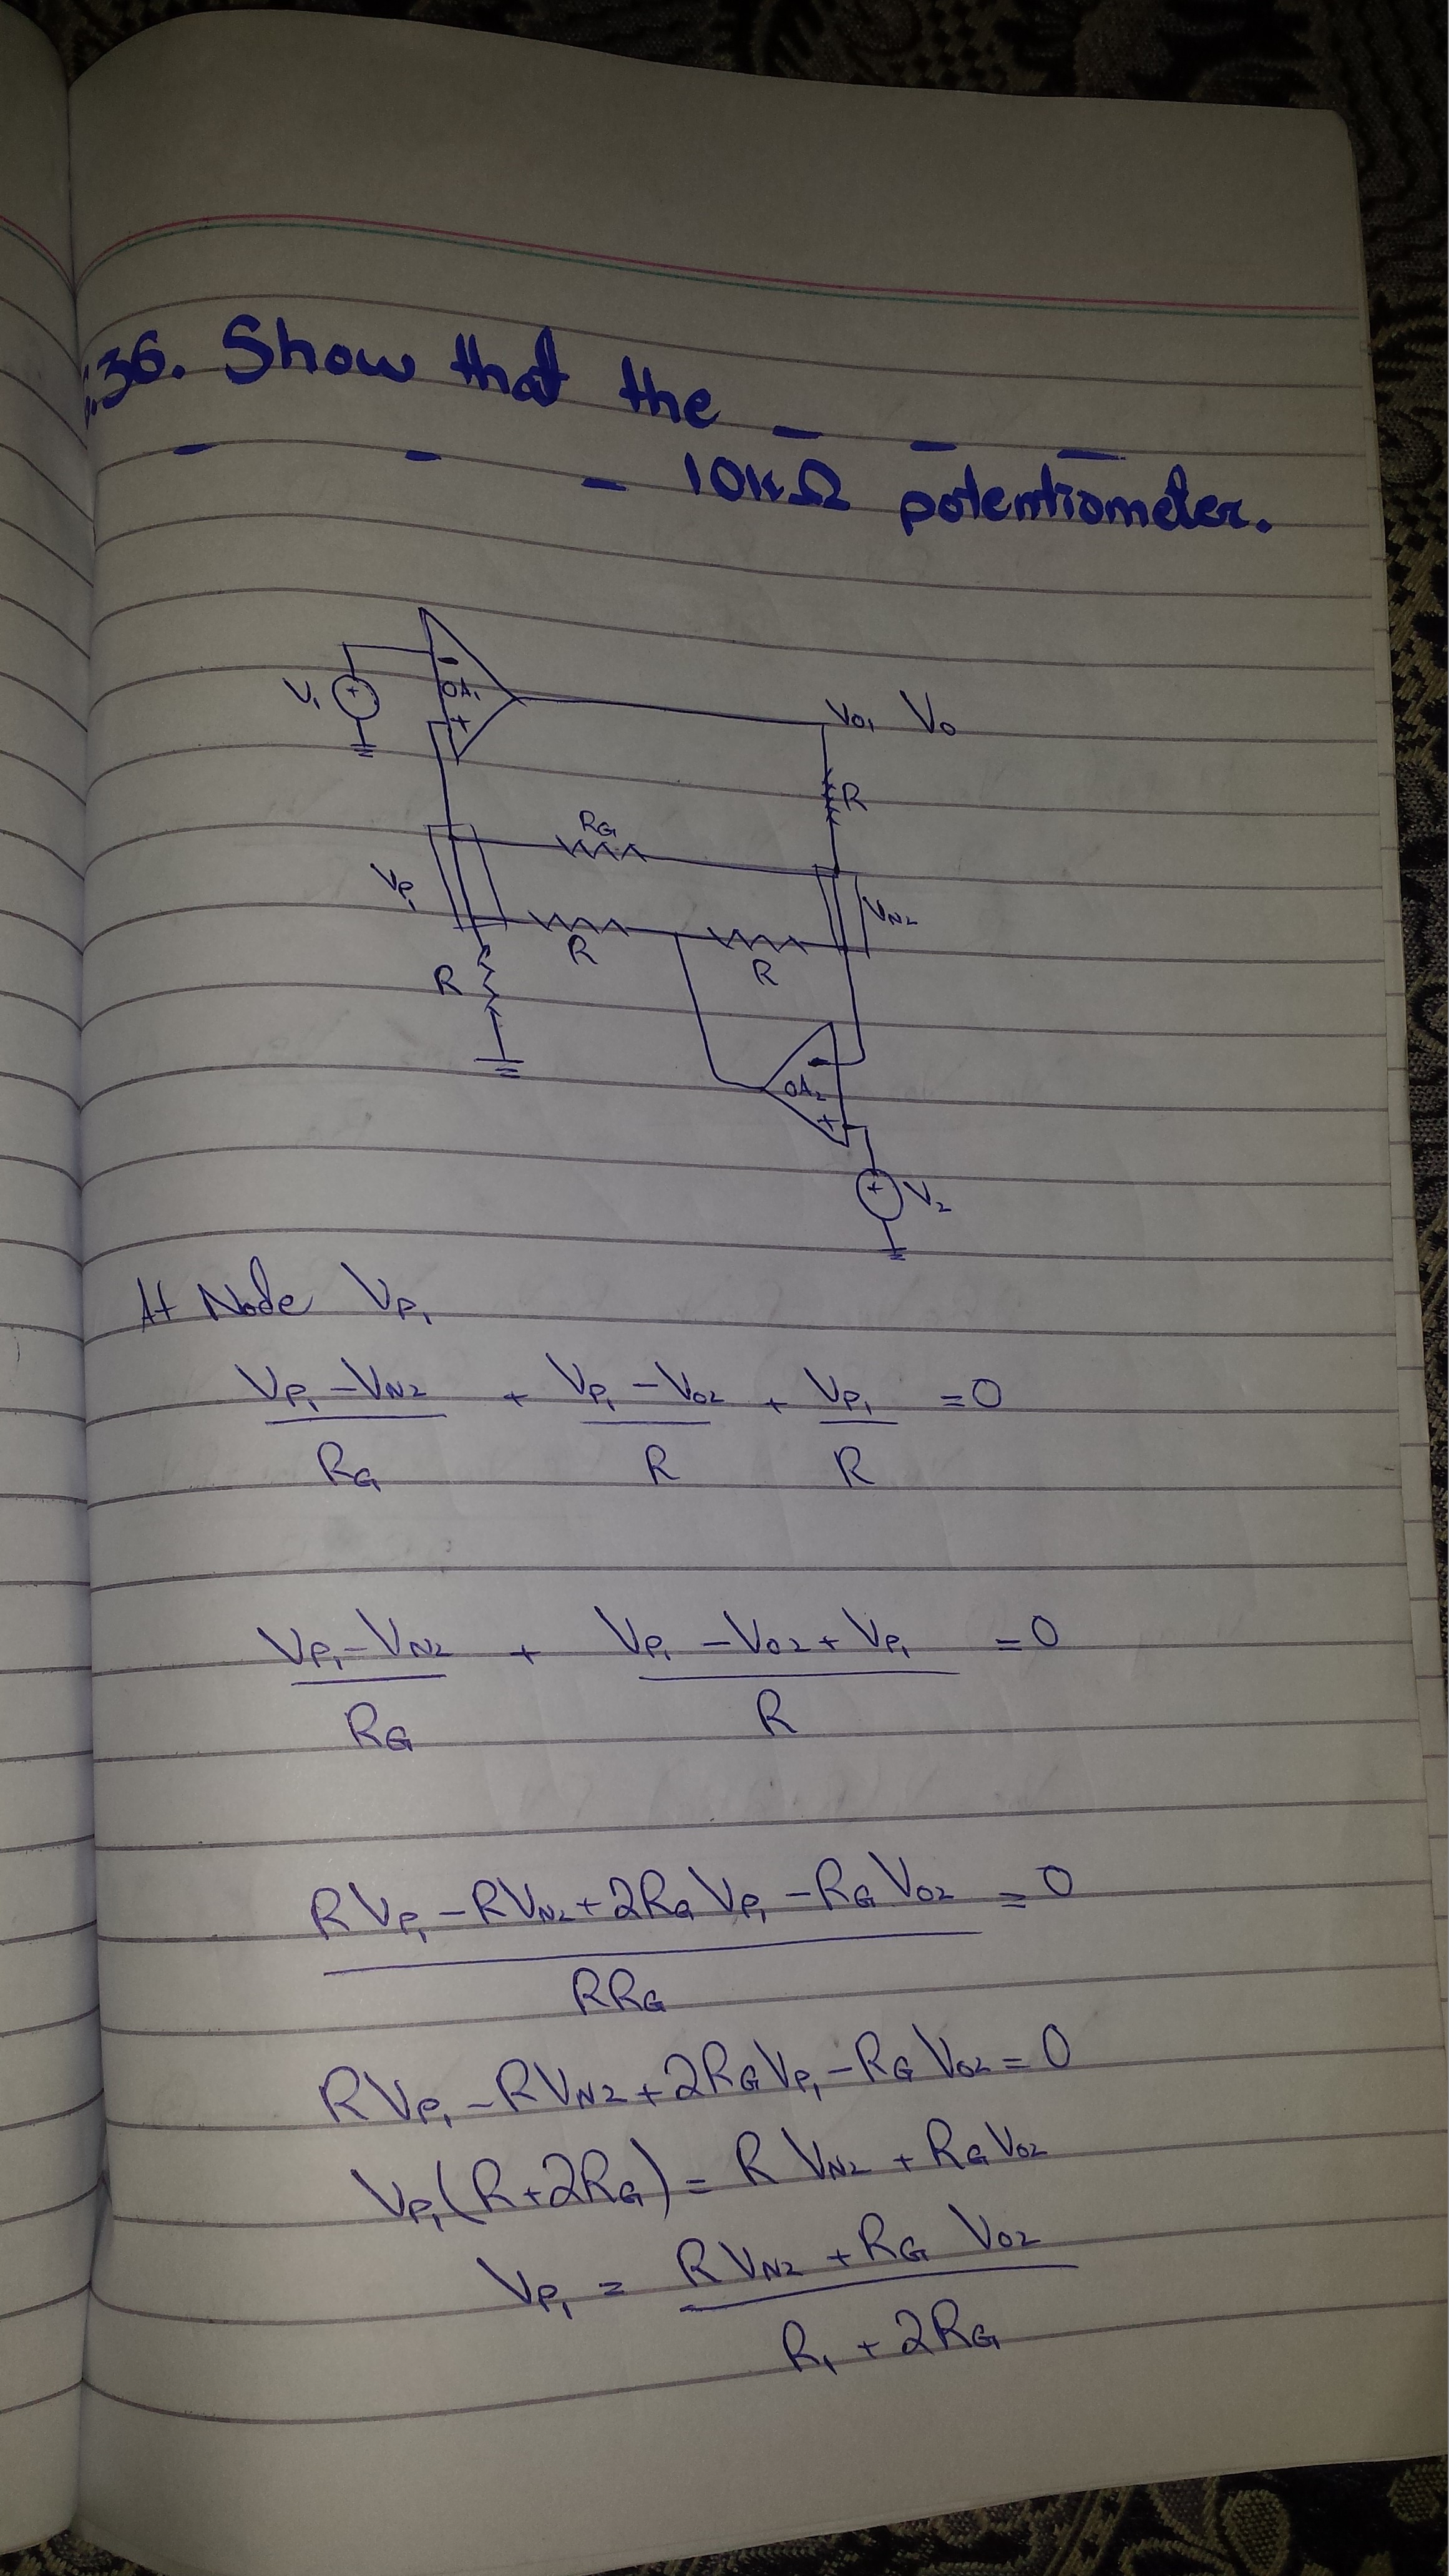 .36. Show that the _ _ _
_ _ _ 10KΩ potentiometer.
V₁
-
OA₁
+
V₀₁ V₀
R
RG
VP₁
VN2
R
R
R
-
OA₂
+
V₂
At Node VP₁
(VP₁ - VN2)/RG + (VP₁ - V02)/R + VP₁/R = 0
(VP₁ - VN2)/RG + (VP₁ - V02 + VP₁)/R = 0
(RVP₁ - RVN2 + 2RGVP₁ - RGV02)/RRG = 0
RVP₁ - RVN2 + 2RGVP₁ - RGV02 = 0
VP₁(R+2RG) = RVN2 + RGV02
VP₁ = (RVN2 + RG V02)/(R₁ + 2RG)